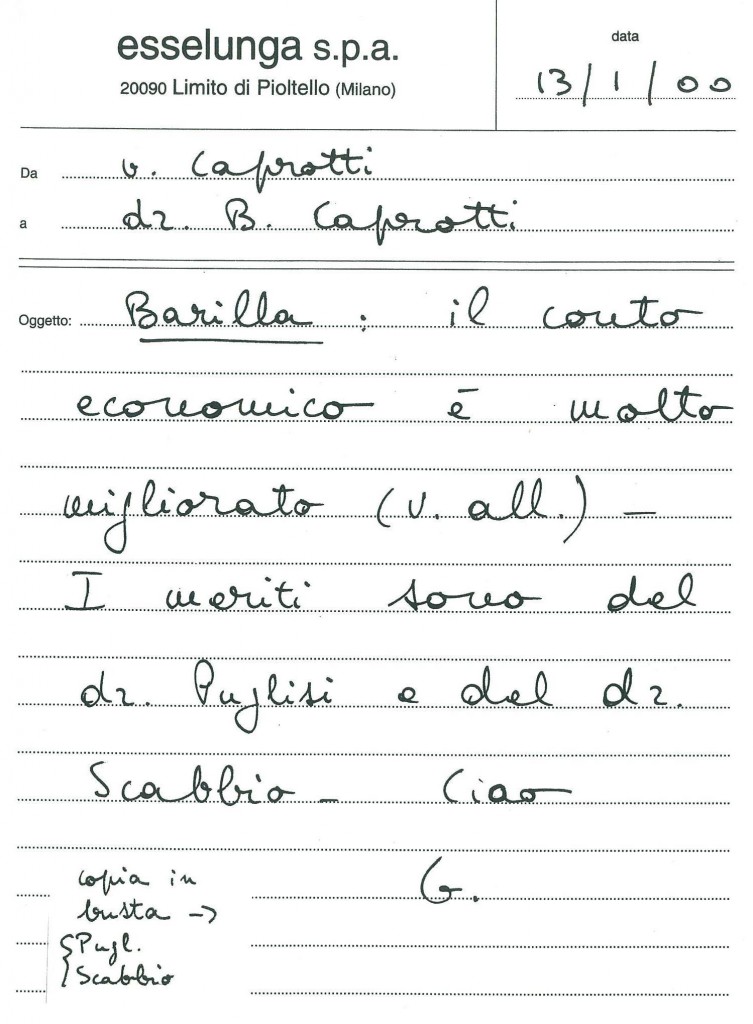 esselunga s.p.a.
20090 Limito di Pioltello (Milano)
data
13/1/00
Da v. Caprotti
a dr. B. Caprotti
Oggetto: Barilla : il conto
economico è molto
migliorato (v. all.) –
I meriti sono del
dr. Puglisi e del dr.
Scabbio – Ciao
G.
copia in
busta ->
{ Pugl.
Scabbio